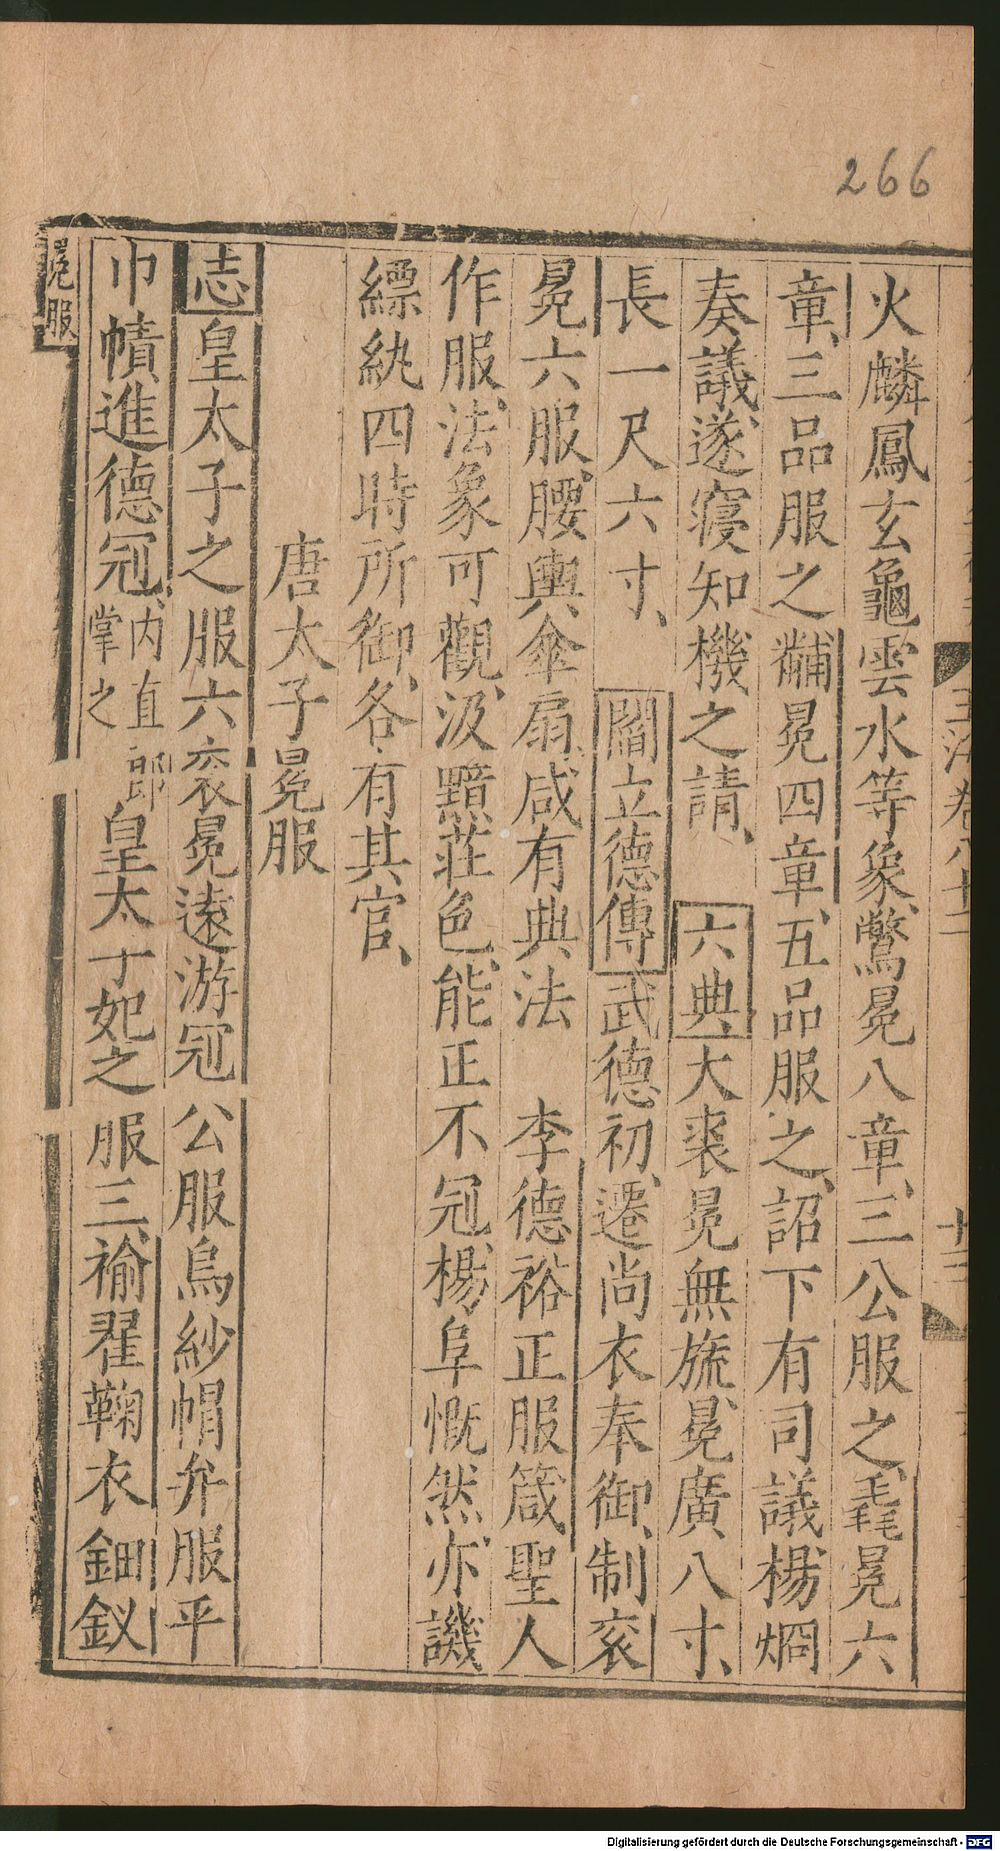 266
火麟鳳玄龜雲水等象鷩冕八章三公服之毳冕六
章三品服之黼冕四章五品服之詔下有司議楊烱
奏議遂寢知機之請、六典大裘冕無旒冕廣八寸、
長一尺六寸、閻立德傳武德初遷尚衣奉御制衮
冕六服腰輿傘扇咸有典法 李德裕正服箴聖人
作服法象可觀汲黯莊色能正不冠楊阜慨然亦譏
縹紈四時所御各有其官、
唐太子冕服
志皇太子之服六衮冕遠游冠公服烏紗帽弁服平
巾幘進德冠內直郎掌之皇太子妃之服三褕翟鞠衣鈿釵
冕服
Digitalisierung gefördert durch die Deutsche Forschungsgemeinschaft - DFG